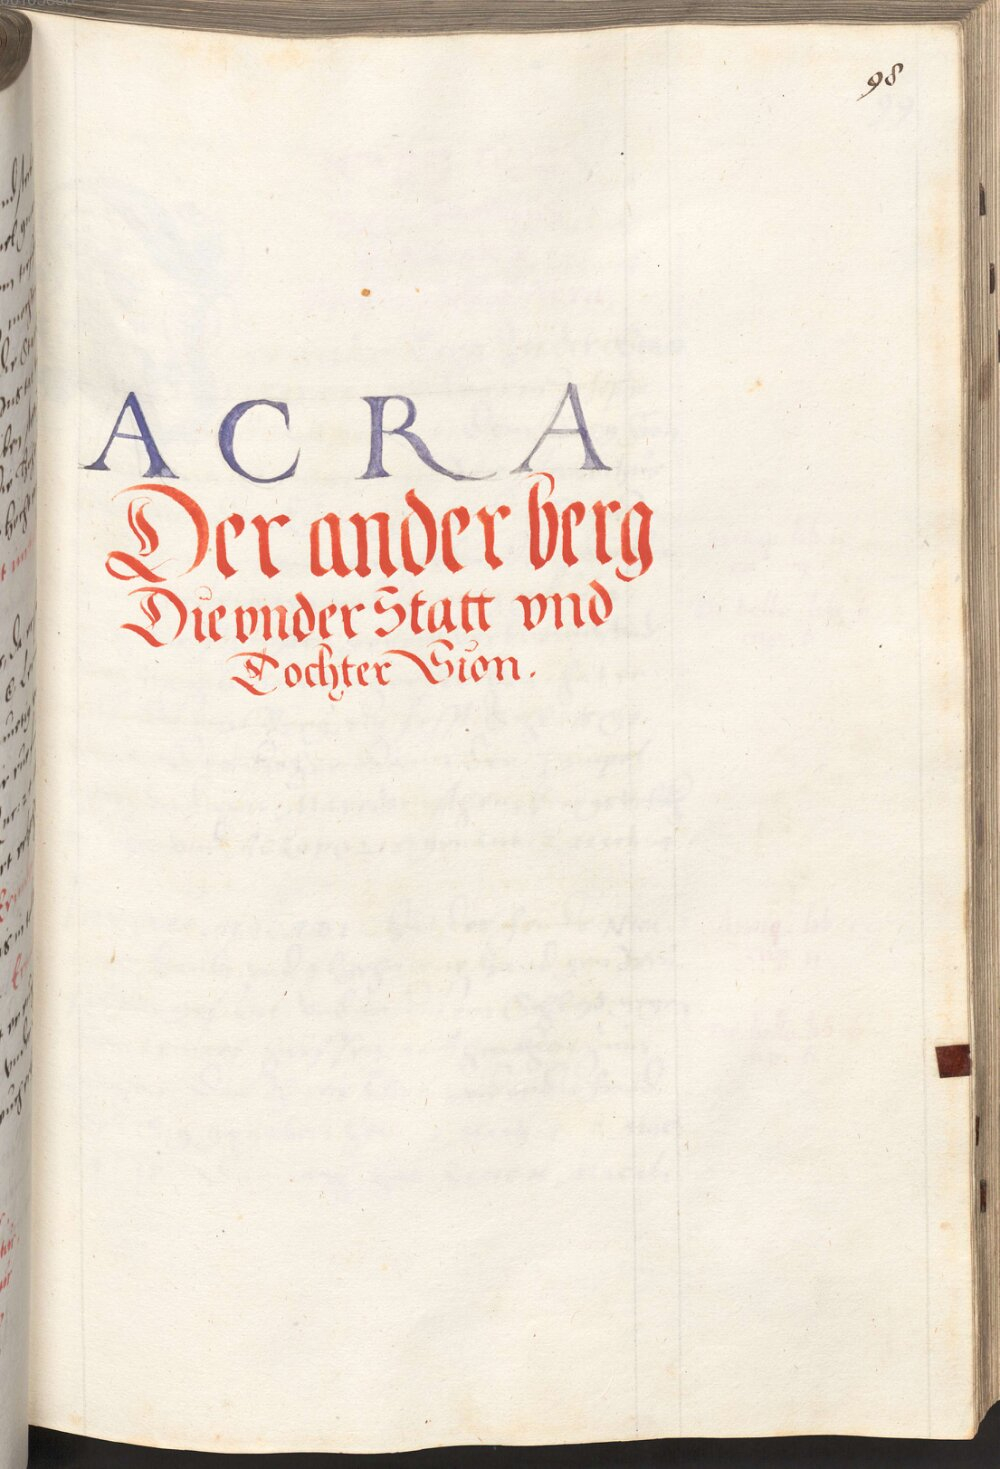 98
ACRA
Der ander berg
Die vnder Statt vnd
Tochter Sion.